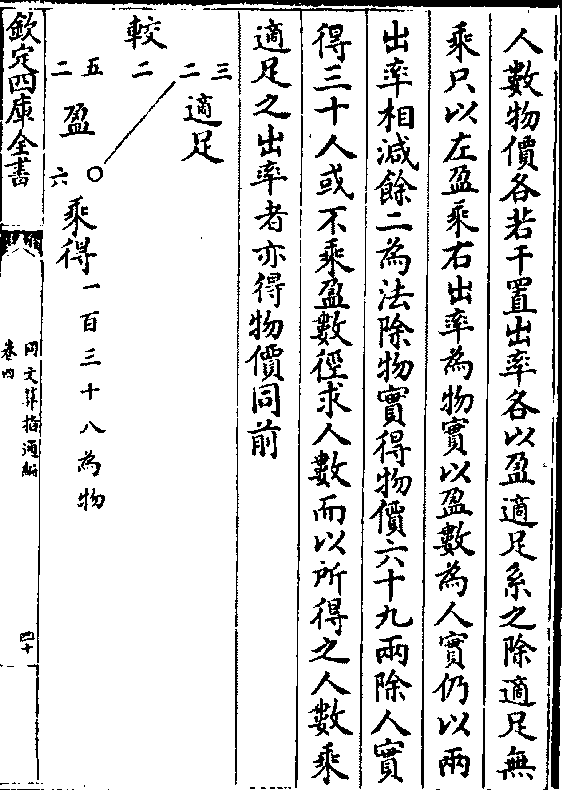 人數物價各若干置出率各以盈適足系之除適足無
乘只以左盈乘右出率為物實以盈數為人實仍以兩
出率相減餘二為法除物實得物價六十九兩除人實
得三十人或不乘盈數徑求人數而以所得之人數乘
適足之出率者亦得物價同前
三
二 適足
較 二
五 盈 六
二 〇 乘得一百三十八為物
欽定四庫全書
同文算指通編
卷四
四十